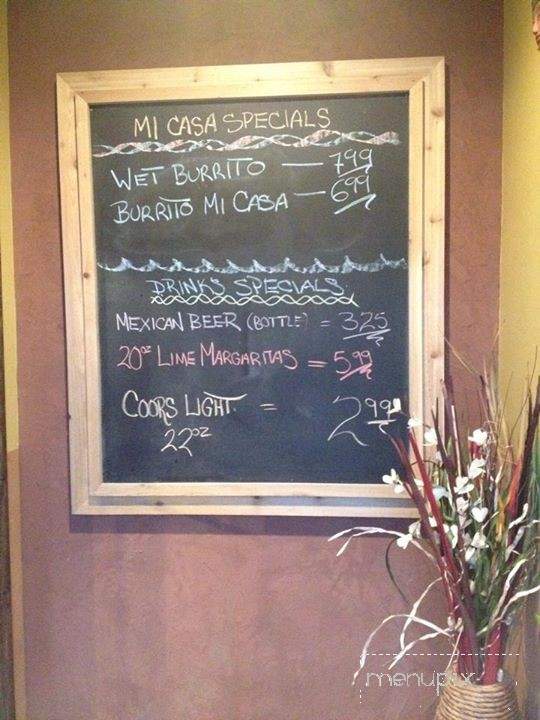 MI CASA SPECIALS
WET BURRITO — 799
BURRITO MI CASA — 699
DRINKS SPECIALS
MEXICAN BEER (BOTTLE) = 325
20oz LIME MARGARITAS = 5.99
COORS LIGHT = 2.99
22oz
menupix